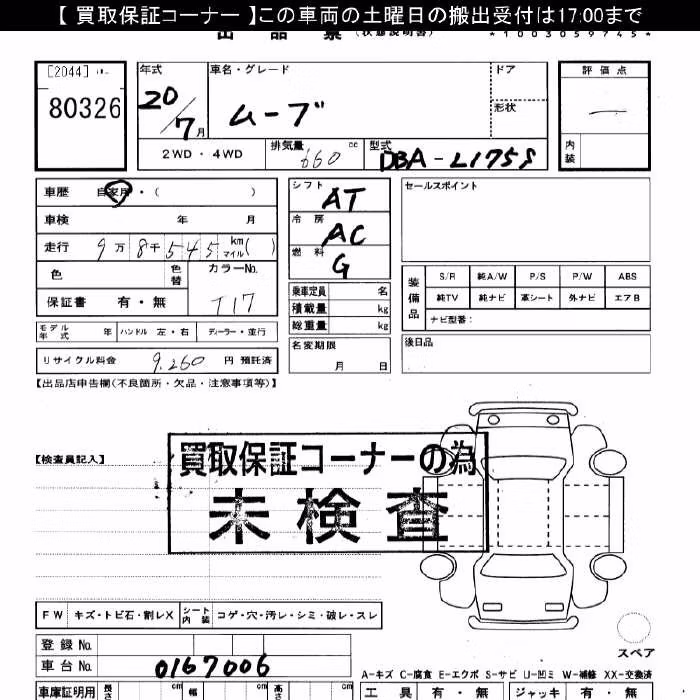 【 買取保証コーナー 】この車両の土曜日の搬出受付は17:00まで
出品票 (状態説明書) *1003059745*
[2044] 年式 車名・グレード ドア 評価点
80326 20/7月 ムーブ 形状
2WD・4WD 排気量 660 cc 型式 DBA-L175S 内装
車歴 自家用・( ) シフト AT セールスポイント
車検 年 月 冷房 AC
走行 9万8千545 km マイル( ) 燃料 G
色 色替 カラーNo. T17
保証書 有・無
乗車定員 名
積載量 kg
総重量 kg
装備品 S/R 純A/W P/S P/W ABS
純TV 純ナビ 革シート 外ナビ エアB
ナビ型番:
モデル年式 年 ハンドル 左・右 ディーラー・並行
名変期限 月 日
後日品
リサイクル料金 9,260 円 預託済
【出品店申告欄(不良箇所・欠品・注意事項等)】
【検査員記入】
買取保証コーナーの為
未検査
FW キズ・トビ石・割レX シート内装 コゲ・穴・汚レ・シミ・破レ・スレ
スペア
登録 No.
車台 No. 0167006
A-キズ C-腐食 E-エクボ S-サビ U-凹ミ W-補修 XX-交換済
車庫証明用 長さ cm 幅 cm 高さ cm 工具 有・無 ジャッキ 有・無